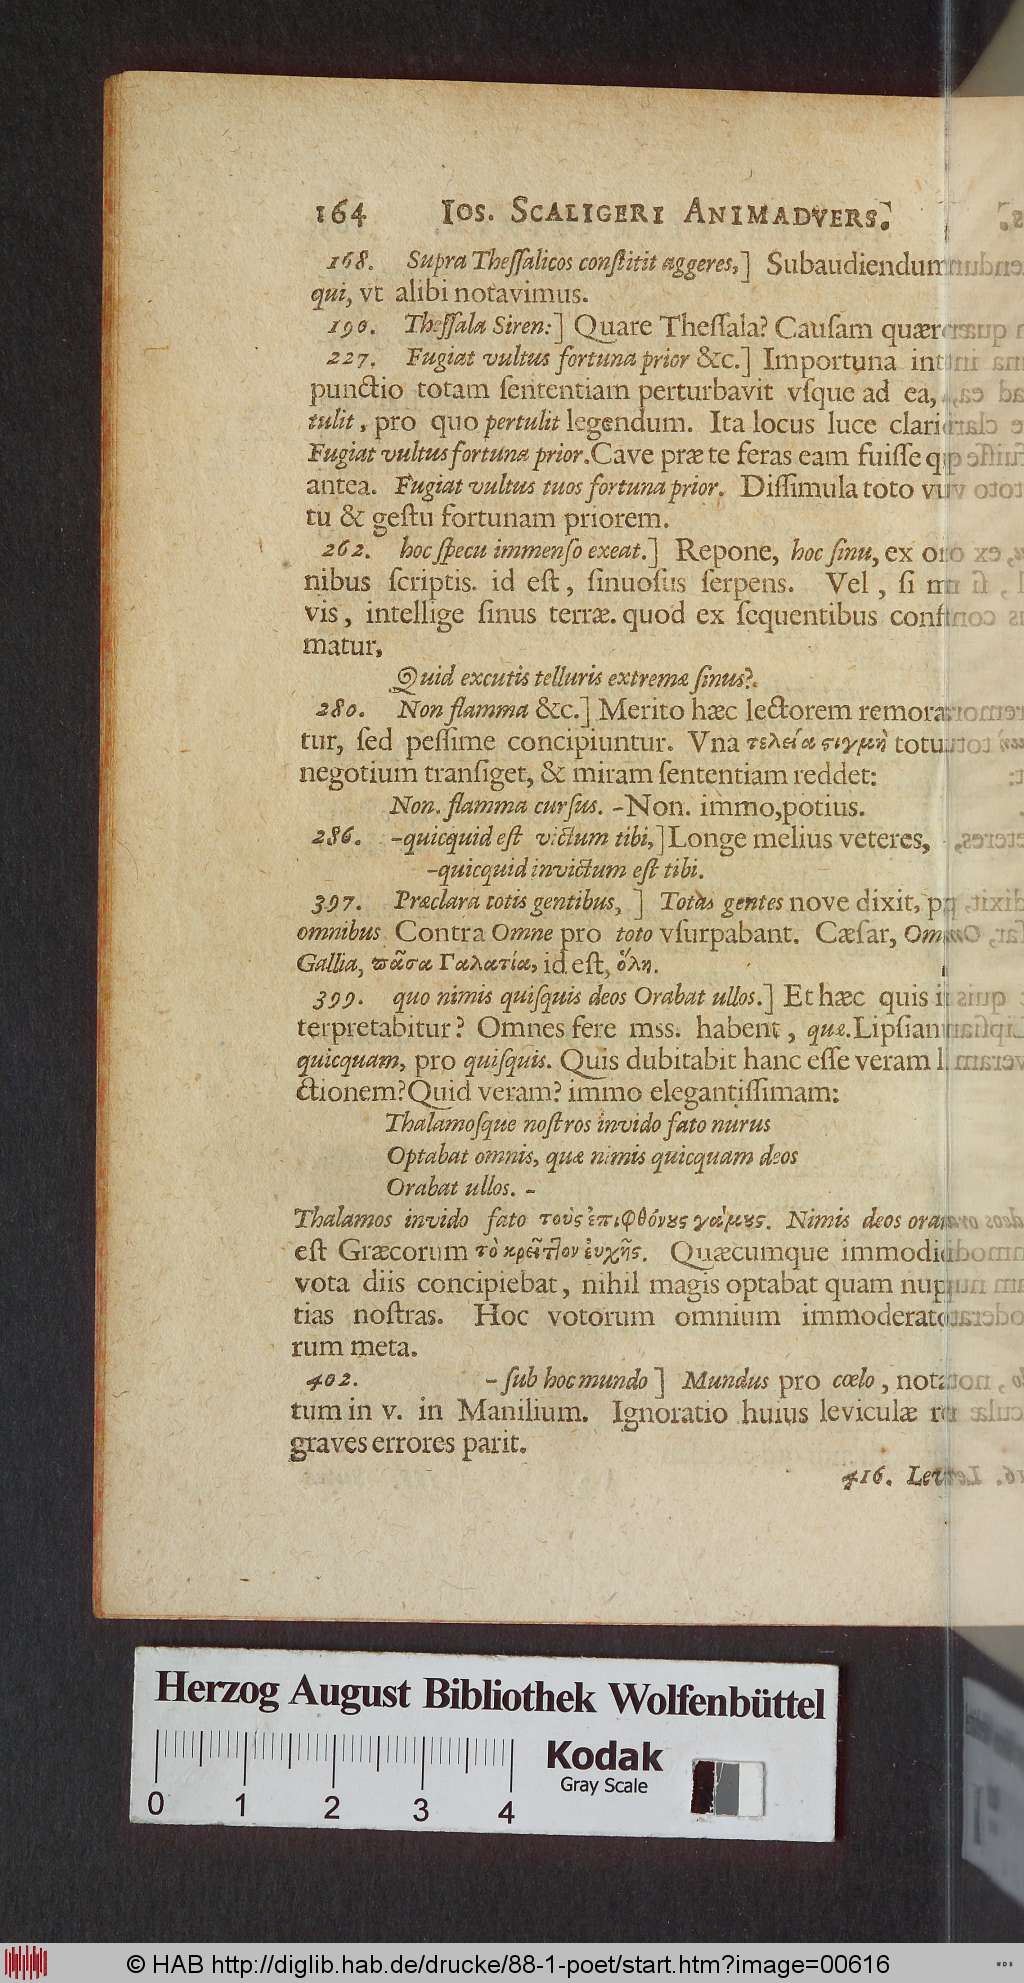 164 IOS. SCALIGERI ANIMADVERS.
168. Supra Theſſalicos conſtitit aggeres,] Subaudiendum
qui, vt alibi notavimus.
190. Theſſala Siren:] Quare Theſſala? Cauſam quæro
227. Fugiat vultus fortuna prior &c.] Importuna in
punctio totam ſententiam perturbavit vſque ad ea,
tulit, pro quo pertulit legendum. Ita locus luce clari
Fugiat vultus fortuna prior. Cave præ te feras eam fuiſſe q
antea. Fugiat vultus tuos fortuna prior. Diſſimula toto vu
tu & geſtu fortunam priorem.
262. hoc ſpecu immenſo exeat.] Repone, hoc ſinu, ex o
nibus ſcriptis. id eſt, ſinuoſus ſerpens. Vel, ſi m
vis, intellige ſinus terræ. quod ex ſequentibus conf
matur,
Quid excutis telluris extremæ ſinus?
280. Non flamma &c.] Merito hæc lectorem remora
tur, ſed peſſime concipiuntur. Vna τελεία ςιγμὴ totu
negotium tranſiget, & miram ſententiam reddet:
Non. flamma curſus. -Non. immo, potius.
286. -quicquid eſt victum tibi,] Longe melius veteres,
-quicquid invictum eſt tibi.
397. Præclara totis gentibus, ] Totas gentes nove dixit, p
omnibus Contra Omne pro toto vſurpabant. Cæſar, Om
Gallia, πᾶσα Γαλατία, id eſt, ὅλη.
399. quo nimis quiſquis deos Orabat ullos.] Et hæc quis i
terpretabitur? Omnes fere mss. habent, quæ. Lipſian
quicquam, pro quiſquis. Quis dubitabit hanc eſſe veram l
ctionem? Quid veram? immo elegantiſſimam:
Thalamoſque noſtros invido fato nurus
Optabat omnis, quæ nimis quicquam deos
Orabat ullos. -
Thalamos invido fato τοὺς ἐπιφθόνȣς γάμȣς. Nimis deos orar
eſt Græcorum τὸ κρεῖτλον ἐυχῆς. Quæcumque immodi
vota diis concipiebat, nihil magis optabat quam nup
tias noſtras. Hoc votorum omnium immoderato
rum meta.
402. - ſub hoc mundo ] Mundus pro cœlo, nota
tum in v. in Manilium. Ignoratio huius leviculæ r
graves errores parit.
416. Le
Herzog August Bibliothek Wolfenbüttel
Kodak
Gray Scale
0 1 2 3 4
© HAB http://diglib.hab.de/drucke/88-1-poet/start.htm?image=00616